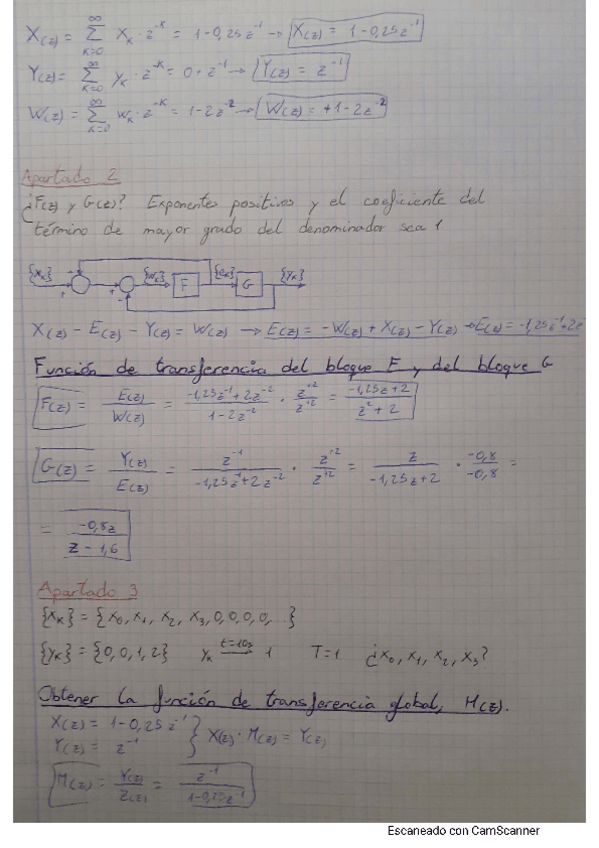 X(z) = ∞ Σ k=0 x_k · z^-k = 1-0,25z^-1 → X(z) = 1-0,25z^-1
Y(z) = ∞ Σ k=0 y_k · z^-k = 0 + z^-1 → Y(z) = z^-1
W(z) = ∞ Σ k=0 w_k · z^-k = 1-2z^-2 → W(z) = +1-2z^-2
Apartado 2
¿F(z) y G(z)? Exponentes positivos y el coeficiente del
término de mayor grado del denominador sea 1
{x_k} - + + - {w_k} F {e_k} G {y_k}
X(z) - E(z) - Y(z) = W(z) → E(z) = -W(z) + X(z) - Y(z) → E(z) = -1,25z^-1+2z
Función de transferencia del bloque F y del bloque G
F(z) = E(z)/W(z) = (-1,25z^-1+2z^-2)/(1-2z^-2) · z^+2/z^+2 = (-1,25z+2)/(z^2+2)
G(z) = Y(z)/E(z) = z^-1/(-1,25z^-1+2z^-2) · z^+2/z^+2 = z/(-1,25z+2) · -0,8/-0,8 =
= -0,8z/(z-1,6)
Apartado 3
{x_k} = {x_0, x_1, x_2, x_3, 0, 0, 0, 0, ...}
{y_k} = {0, 0, 1, 2} y_k t=10s → 1 T=1 ¿x_0, x_1, x_2, x_3?
Obtener la función de transferencia global, M(z).
X(z) = 1-0,25z^-1
Y(z) = z^-1 } X(z) · M(z) = Y(z)
M(z) = Y(z)/Z(z) = z^-1/(1-0,25z^-1)
Escaneado con CamScanner